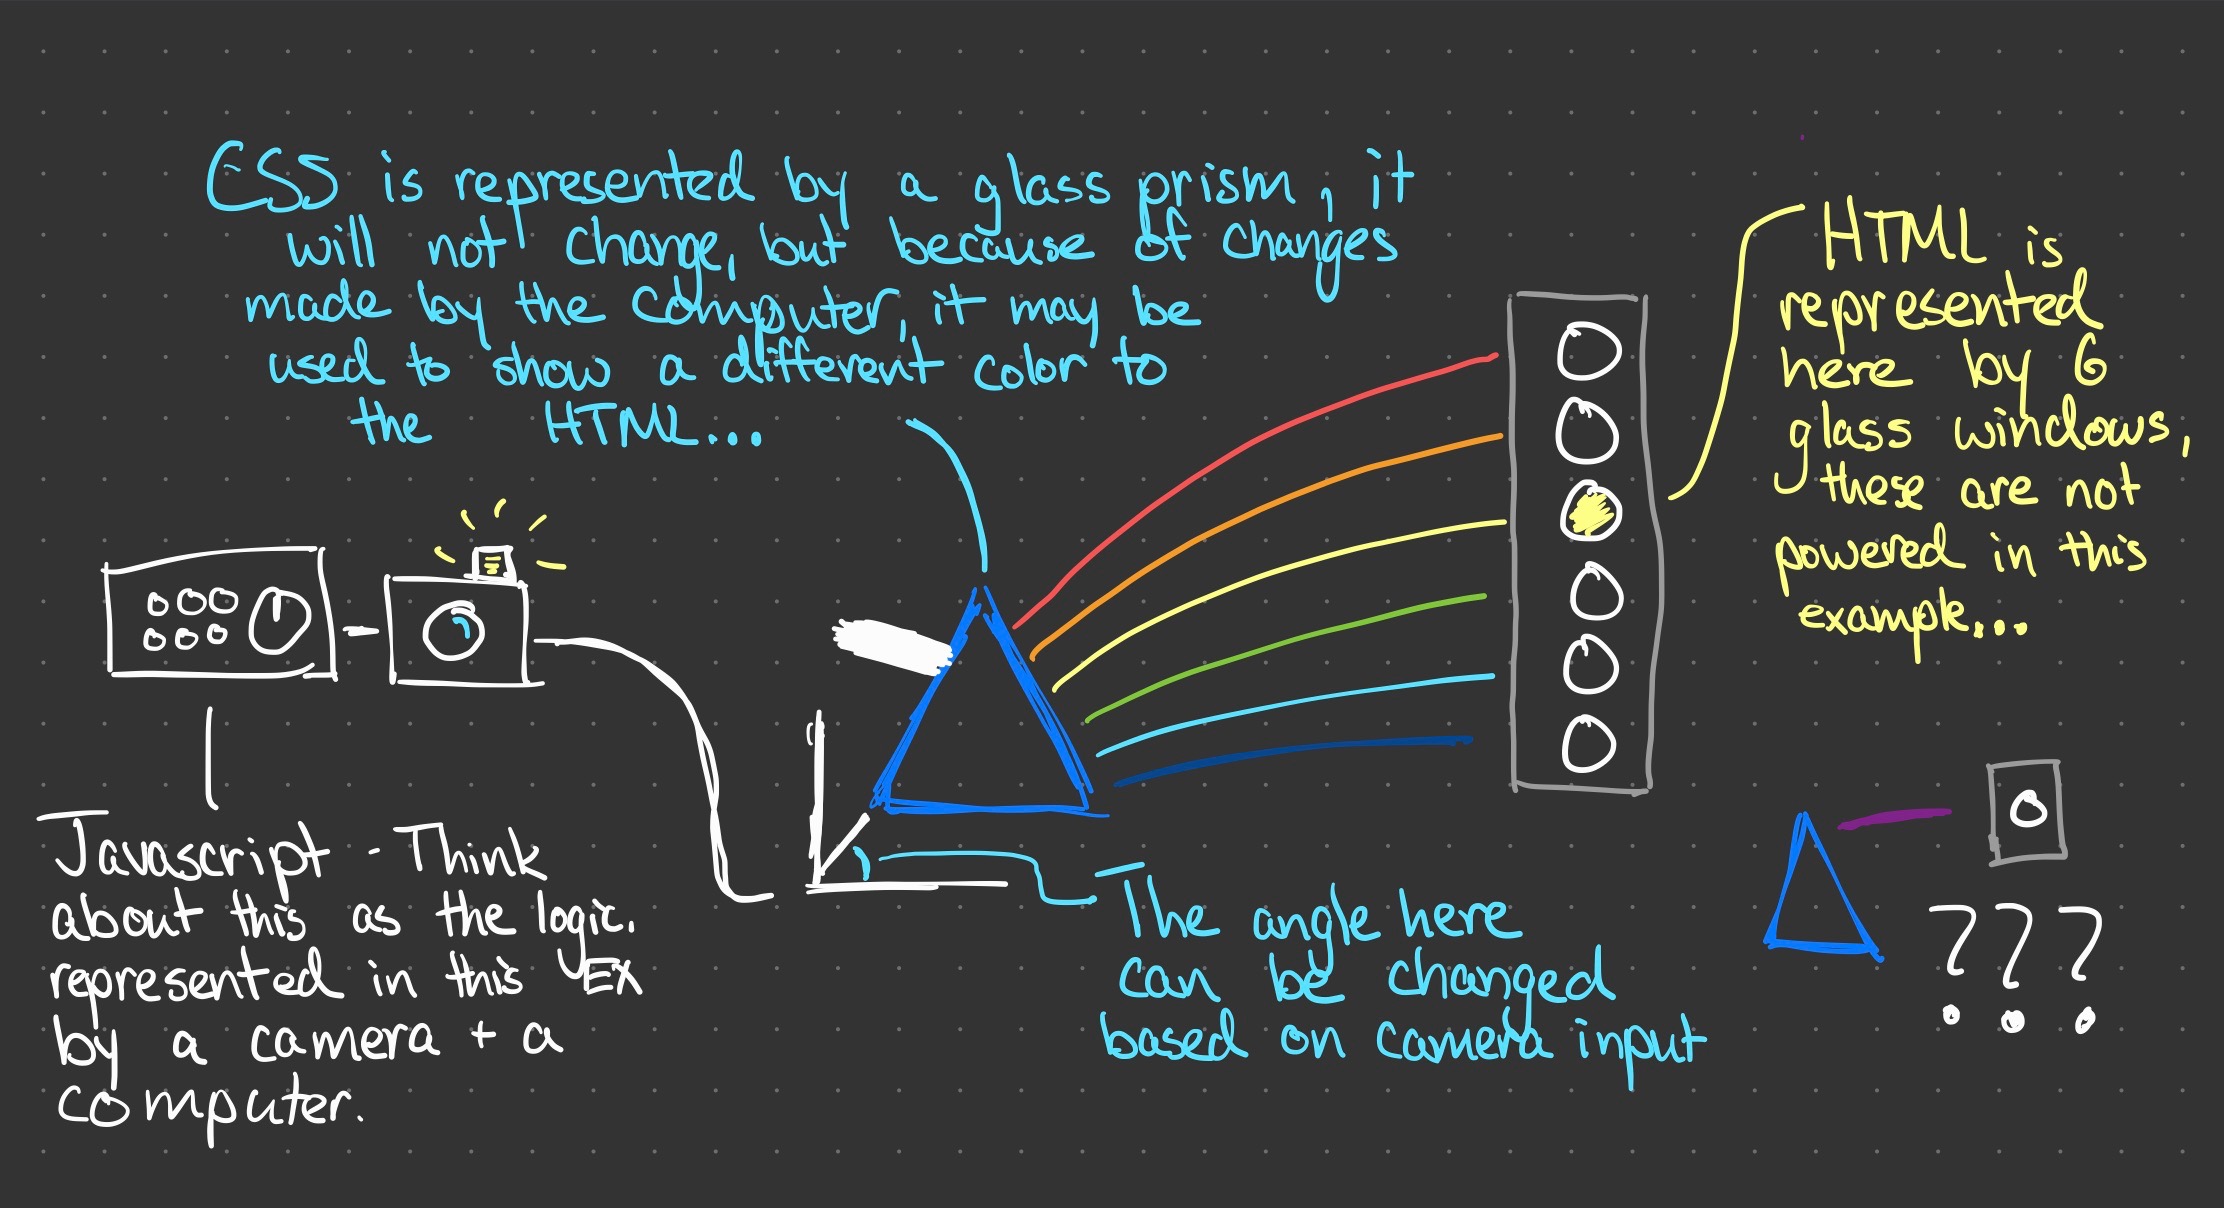 CSS is represented by a glass prism, it
will not change, but because of changes
made by the computer, it may be
used to show a different color to
the HTML...
HTML is
represented
here by 6
glass windows,
these are not
powered in this
example...
Javascript - Think
about this as the logic.
represented in this EX
by a camera + a
computer.
The angle here
can be changed
based on camera input
???